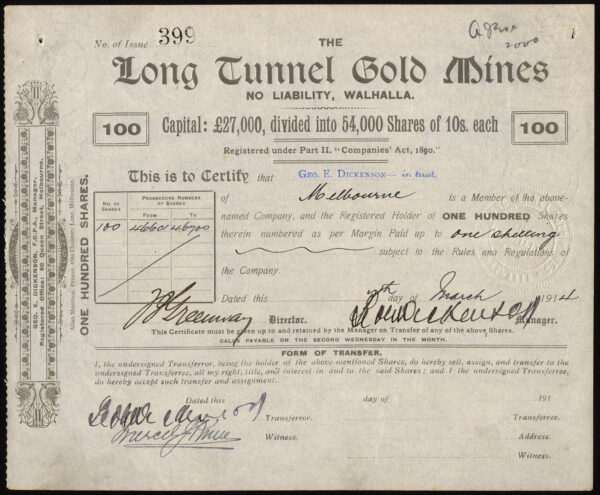 No. of Issue 399
2000
THE
Long Tunnel Gold Mines
NO LIABILITY, WALHALLA.
100
Capital: £27,000, divided into 54,000 Shares of 10s. each
100
Registered under Part II. "Companies' Act, 1890."
This is to Certify that GEO. E. DICKENSON - in trust.
of Melbourne is a Member of the above-
named Company, and the Registered Holder of ONE HUNDRED Shares
therein numbered as per Margin Paid up to one shilling
subject to the Rules and Regulations of
the Company.
No. OF SHARES
PROGRESSIVE NUMBERS OF SHARES.
FROM TO
100 46601 46700
Dated this 7th day of March 1914
Director.
Manager.
This Certificate must be given up to and retained by the Manager on Transfer of any of the above Shares.
CALLS PAYABLE ON THE SECOND WEDNESDAY IN THE MONTH.
FORM OF TRANSFER.
I, the undersigned Transferror, being the holder of the above-mentioned Shares, do hereby sell, assign, and transfer to the
undersigned Transferree, all my right, title, and interest in and to the said Shares; and I the undersigned Transferree,
do hereby accept such transfer and assignment.
Dated this day of 191
Transferror.
Transferree.
Witness.
Address.
Witness.
ONE HUNDRED SHARES.
Allan Mattison, Printer, Chancery Lane, Melbourne.
GEO. E. DICKENSON, F.C.P.A., Manager.
Registered Office: 60 Queen Street, Melbourne.